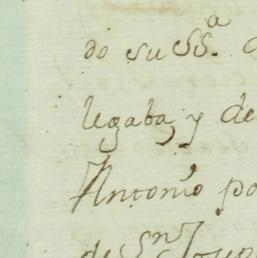 do su SSª.
legaba, y de
Antonio po
de Sn Josep